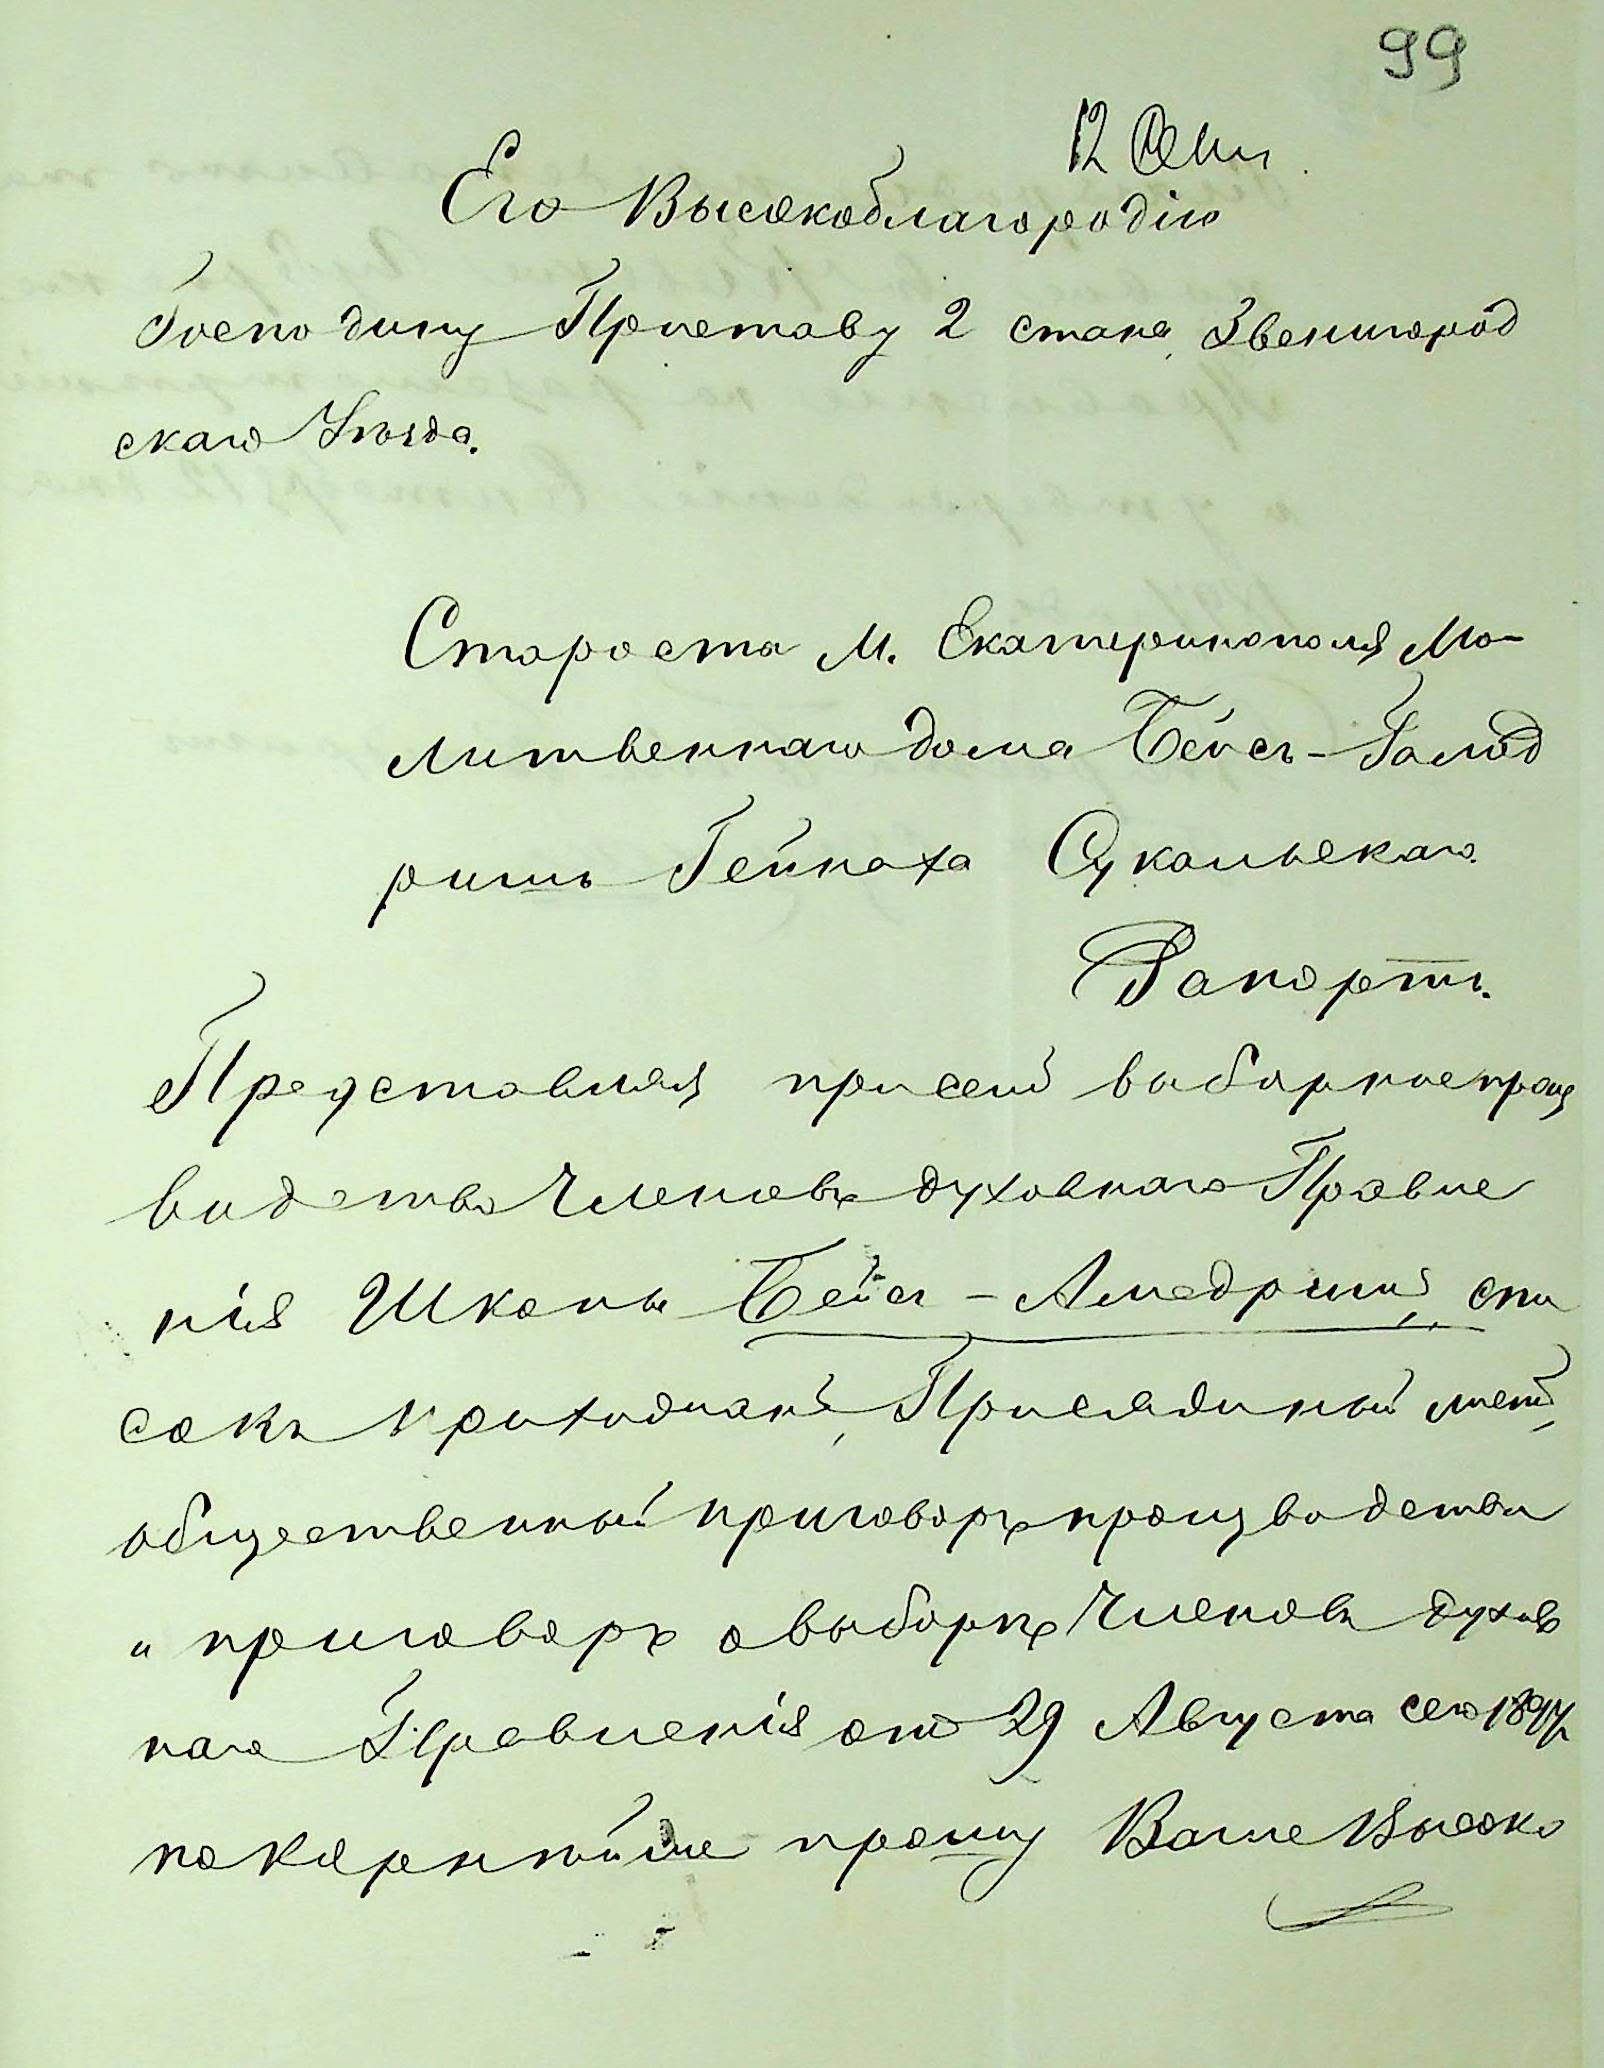 99
12 Сент.
Его Высокоблагородію
Господину Приставу 2 стана Звенигород
скаго Уѣзда.
Староста м. Екатеринополя Мо-
литвеннаго дома Бейсъ-Гамед
ришъ Гейнаха Сукольскаго
Рапортъ.
Представляя при семъ выборное произ
водство Членовъ духовнаго Правле
нія Школы Бейсъ-Амедришъ, спи
сокъ прихожанъ, Присяжный листъ,
общественный приговоръ производства
и приговоръ о выборѣ Членовъ духов
наго Правленія отъ 29 Августа сего 1897 г.
покорнѣйше прошу Ваше Высоко